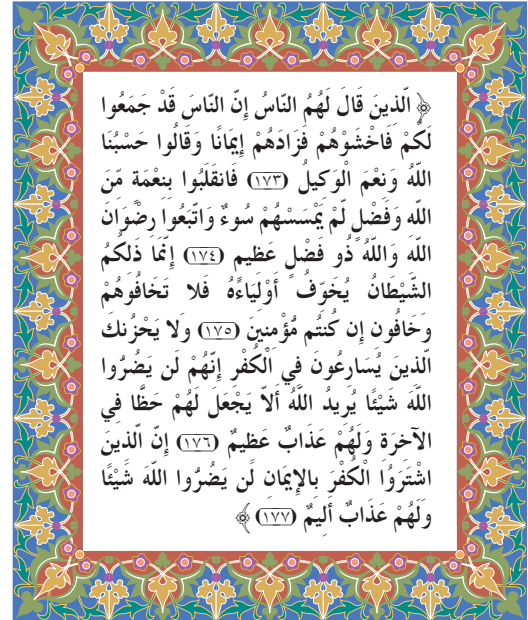 ﴿ الّذينَ قَالَ لَهُمُ النّاسُ إِنّ النّاسَ قَدْ جَمَعُوا
لَكُمْ فَاخْشَوْهُمْ فَزَادَهُمْ إِيمَانًا وَقَالُوا حَسْبُنَا
اللّهُ وَنعْمَ الْوَكيلُ (١٧٣) فَانقَلَبُوا بِنعْمَةٍ مّنَ
اللّه وَفَضْلٍ لّمْ يَمْسَسْهُمْ سُوءٌ وَاتّبَعُوا رِضْوَانَ
اللّه وَاللّهُ ذُو فَضْلٍ عَظيمٍ (١٧٤) إِنّمَا ذَلكُمُ
الشّيْطَانُ يُخَوّفُ أَوْليَاءَهُ فَلا تَخَافُوهُمْ
وَخَافُونِ إِن كُنتُم مُؤْمنينَ (١٧٥) وَلا يَحْزُنكَ
الّذينَ يُسَارِعُونَ فِي الْكُفْرِ إِنّهُمْ لَن يَضُرُّوا
اللّهَ شَيْئًا يُرِيدُ اللّهُ أَلاّ يَجْعَلَ لَهُمْ حَظًّا فِي
الآخرَةِ وَلَهُمْ عَذَابٌ عَظيمٌ (١٧٦) إِنّ الّذينَ
اشْتَرَوُا الْكُفْرَ بِالإِيمَانِ لَن يَضُرُّوا اللّهَ شَيْئًا
وَلَهُمْ عَذَابٌ أَليمٌ (١٧٧) ﴾